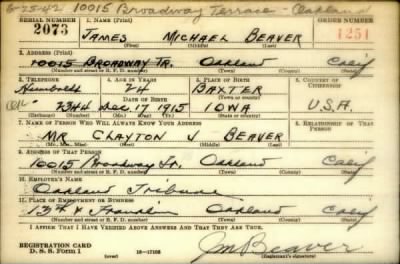 5-25-42 10015 Broadway Terrace - Oakland
SERIAL NUMBER 1. NAME (Print) ORDER NUMBER
2073 JAMES MICHAEL BEAVER 1251
(First) (Middle) (Last)
2. ADDRESS (Print)
10015 BROADWAY TR. Oakland Calif
(Number and street or R. F. D. number) (Town) (County) (State)
3. TELEPHONE 4. AGE IN YEARS 5. PLACE OF BIRTH 6. COUNTRY OF CITIZENSHIP
Humboldt 24 BAXTER
DATE OF BIRTH
7344 Dec. 17 1915 IOWA U.S.A.
7. NAME OF PERSON WHO WILL ALWAYS KNOW YOUR ADDRESS 8. RELATIONSHIP OF THAT PERSON
MR CLAYTON J BEAVER
(Mr., Mrs., Miss) (First) (Middle) (Last)
9. ADDRESS OF THAT PERSON
10015 Broadway Tr. Oakland Calif
(Number and street or R. F. D. number) (Town) (County) (State)
10. EMPLOYER'S NAME
Oakland Tribune
11. PLACE OF EMPLOYMENT OR BUSINESS
13th & Franklin Oakland Calif
(Number and street or R. F. D. number) (Town) (County) (State)
I AFFIRM THAT I HAVE VERIFIED ABOVE ANSWERS AND THAT THEY ARE TRUE.
REGISTRATION CARD
D. S. S. Form 1 (over) J M Beaver
(Registrant's signature)